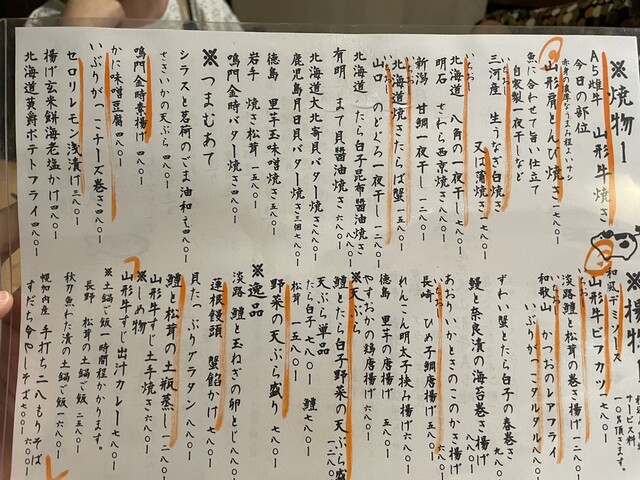 ※焼物ー
A5雌牛 山形牛 焼き
今日の部位
赤身の濃厚なうまみ程よいサシ
山形 唐とんび焼き 一七八〇ー
魚に合わせて旨い仕立て
自家製一夜干しなど
三河産 生うなぎ白焼き
又は蒲焼き
北海道 八角の一夜干し
明石 さわら西京焼き
新潟 甘鯛一夜干し 一二八〇ー
北海道焼きたらば蟹
山口 のどぐろ一夜干し
北海道 たら白子昆布醤油焼き
有明 まて貝醤油焼き 六八〇ー
北海道大北寄貝バター焼き
鹿児島月日貝バター焼き
徳島 里芋玉味噌焼き
岩手 焼き松茸 一五八〇ー
鳴門金時バター焼き
※つまむあて
シラスと茗荷のごま油和え 四八〇ー
ささいかの天ぷら 四八〇ー
鳴門金時素揚げ 四八〇ー
かに味噌豆腐 四八〇ー
いぶりがっこチーズ巻き 四八〇ー
セロリレモン浅漬け 三八〇ー
揚げ玄米餅海老塩かけ 四八〇ー
北海道黄爵ポテトフライ 四八〇ー
※揚物ー
和風デミソース
山形牛ビフカツ 一七八〇ー
淡路鱧と松茸の巻き揚げ
和歌山 かつおのレアフライ
いぶりがっこタルタル
ずわい蟹とたら白子の春巻き
鰻と奈良漬の海苔巻き揚げ
あおりいかとさのこのかき揚げ
長崎 ひめ子鯛唐揚げ 六八〇ー
れんこん明太子挟み揚げ
徳島 里芋の唐揚げ 五八〇ー
やすおかの鶏唐揚げ 六八〇ー
※天ぷら
鱧とたら白子野菜の天ぷら盛
天ぷら単品
たら白子 七八〇ー 鱧 七八〇ー
松茸 一五八〇ー
野菜の天ぷら盛り 七八〇ー
※逸品
淡路 鱧と玉ねぎの卵とじ
蓮根饅頭 蟹餡かけ
貝たっぷりグラタン 八八〇ー
鱧と松茸の土瓶蒸し
山形牛すじ 土手焼き 六八〇ー
※しめ物
山形牛すじ出汁カレー 七八〇ー
※土鍋ご飯一時間程かかります。
長野 松茸の土鍋ご飯 二五八〇ー
秋刀魚わた漬の土鍋ご飯 一六八〇ー
幌加内産 手打ち二八もりそば
すだち冷やしそば